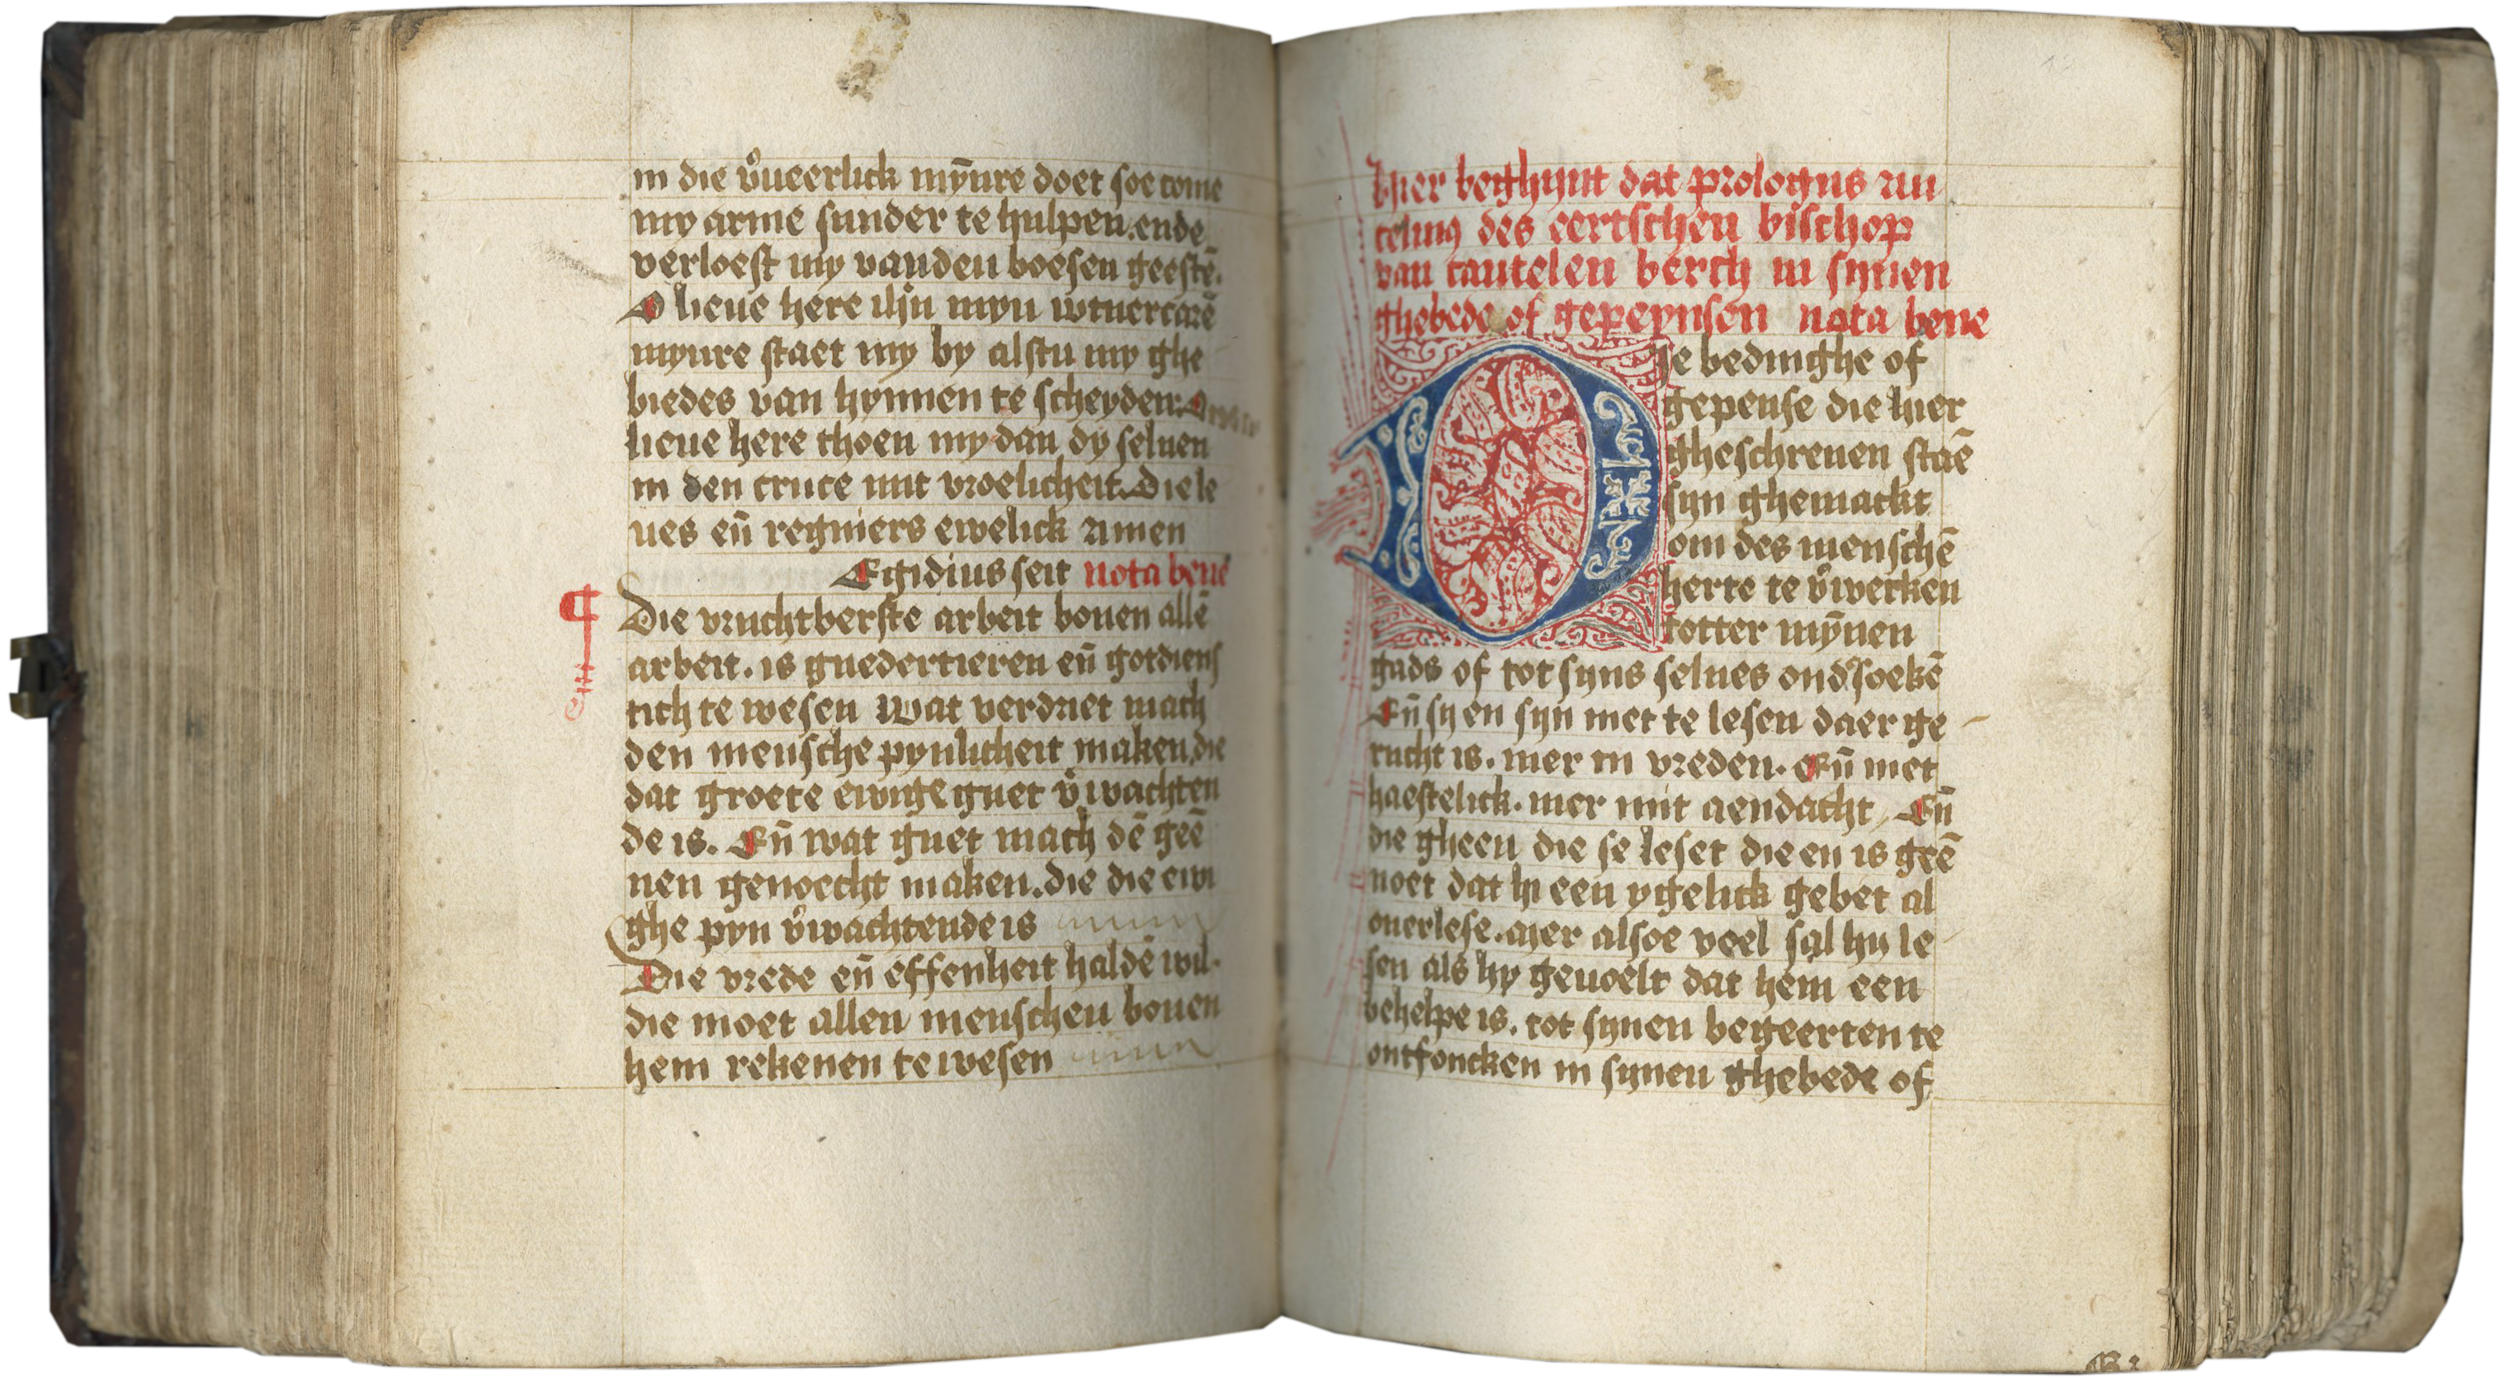 in die v̊ueerlick mȳnre doet soe come
my arme sunder te hulpen. ende
verloest my vanden boesen geestē.
O lieue here ihū myn wtuercorē
mynre staet my by alstu my ghe
biedes van hynnen te scheyden.
lieue here thoen my dan dy seluen
in den cruce mit vroelicheit. Die le
ues en̄ regniers ewelick Amen
Egidius seit nota bene
¶ Die vruchtberste arbeit bouen allē
arbeit. is guedertieren en̄ gotdiens
tich te wesen Wat verdriet mach
den mensche pynlicheit maken, die
dat groete ewige guet v̊wachten
de is. En̄ wat guet mach dē geē
nen genoecht maken. die die ewi
ghe pyn v̊wachtende is
Die vrede en̄ effenheit haldē wil.
die moet allen menschen bouen
hem rekenen te wesen
Hier beghynt dat prologus An
celmꝰ des eertschen bischop
van cantelen berch in synen
ghebede of gepeynsen nota bene
Die bedinghe of
gepense die hier
gheschreuen staē
syn ghemackt
om des menschē
herte te v̊wecken
totter mȳnen
gads of tot syns selues ond̉soekē
En̄ sy en syn niet te lesen daer ge
rucht is. mer in vreden. En̄ niet
haestelick. mer mit aendacht, En̄
die gheen die se leset die en is geē
noet dat hi een ygelick gebet al
ouerlese. mer alsoe voel sal hy le
sen als hy geuoelt dat hem een
behelpe is. tot synen begeerten te
ontfoncken in synen ghebede of